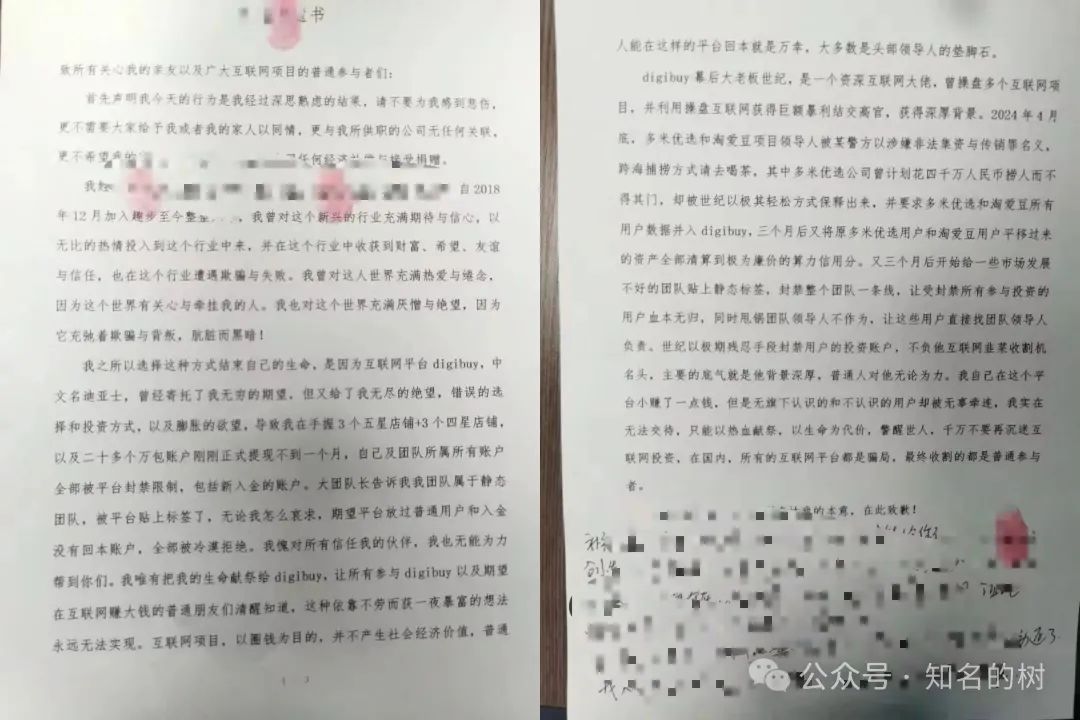 书
致所有关心我的亲友以及广大互联网项目的普通参与者们：
首先声明我今天的行为是我经过深思熟虑的结果，请不要为我感到悲伤，
更不需要大家给予我或者我的家人以同情，更与我所供职的公司无任何关联，
更不希望我的 任何经济 接受捐赠。
我 自2018
年12月加入趣步至今整 ，我曾对这个新兴的行业充满期待与信心，以
无比的热情投入到这个行业中来，并在这个行业中收获到财富、希望、友谊
与信任，也在这个行业遭遇欺骗与失败。我曾对这人世界充满热爱与倦念，
因为这个世界有关心与牵挂我的人。我也对这个世界充满厌憎与绝望，因为
它充弛着欺骗与背叛，肮脏而黑暗！
我之所以选择这种方式结束自己的生命，是因为互联网平台 digibuy，中
文名迪亚士，曾经寄托了我无穷的期望，但又给了我无尽的绝望，错误的选
择和投资方式，以及膨胀的欲望，导致我在手握3个五星店铺+3个四星店铺，
以及二十多个万包账户刚刚正式提现不到一个月，自己及团队所属所有账户
全部被平台封禁限制，包括新入金的账户。大团队长告诉我我团队属于静态
团队，被平台贴上标签了，无论我怎么哀求，期望平台放过普通用户和入金
没有回本账户，全部被冷漠拒绝。我愧对所有信任我的伙伴，我也无能为力
帮到你们。我唯有把我的生命献祭给digibuy，让所有参与digibuy以及期望
在互联网赚大钱的普通朋友们清醒知道，这种依靠不劳而获一夜暴富的想法
永远无法实现。互联网项目，以圈钱为目的，并不产生社会经济价值，普通
人能在这样的平台回本就是万幸，大多数是头部领导人的垫脚石。
digibuy幕后大老板世纪，是一个资深互联网大佬，曾操盘多个互联网项
目，并利用操盘互联网获得巨额暴利结交高官，获得深厚背景。2024年4月
底，多米优选和淘爱豆项目领导人被某警方以涉嫌非法集资与传销罪名义，
跨海捕捞方式请去喝茶，其中多米优选公司曾计划花四千万人民币捞人而不
得其门，却被世纪以极其轻松方式保释出来，并要求多米优选和淘爱豆所有
用户数据并入digibuy，三个月后又将原多米优选用户和淘爱豆用户平移过来
的资产全部清算到极为廉价的算力信用分。又三个月后开始给一些市场发展
不好的团队贴上静态标签，封禁整个团队一条线，让受封禁所有参与投资的
用户血本无归，同时甩锅团队领导人不作为，让这些用户直接找团队领导人
负责。世纪以极期残忍手段封禁用户的投资账户，不负他互联网韭菜收割机
名头，主要的底气就是他背景深厚，普通人对他无论为力。我自己在这个平
台小赚了一点钱，但是无旗下认识的和不认识的用户却被无事牵连，我实在
无法交待，只能以热血献祭，以生命为代价，警醒世人，千万不要再沉迷互
联网投资，在国内，所有的互联网平台都是骗局，最终收割的都是普通参与
者。
我的本意，在此致歉！
公众号·知名的树